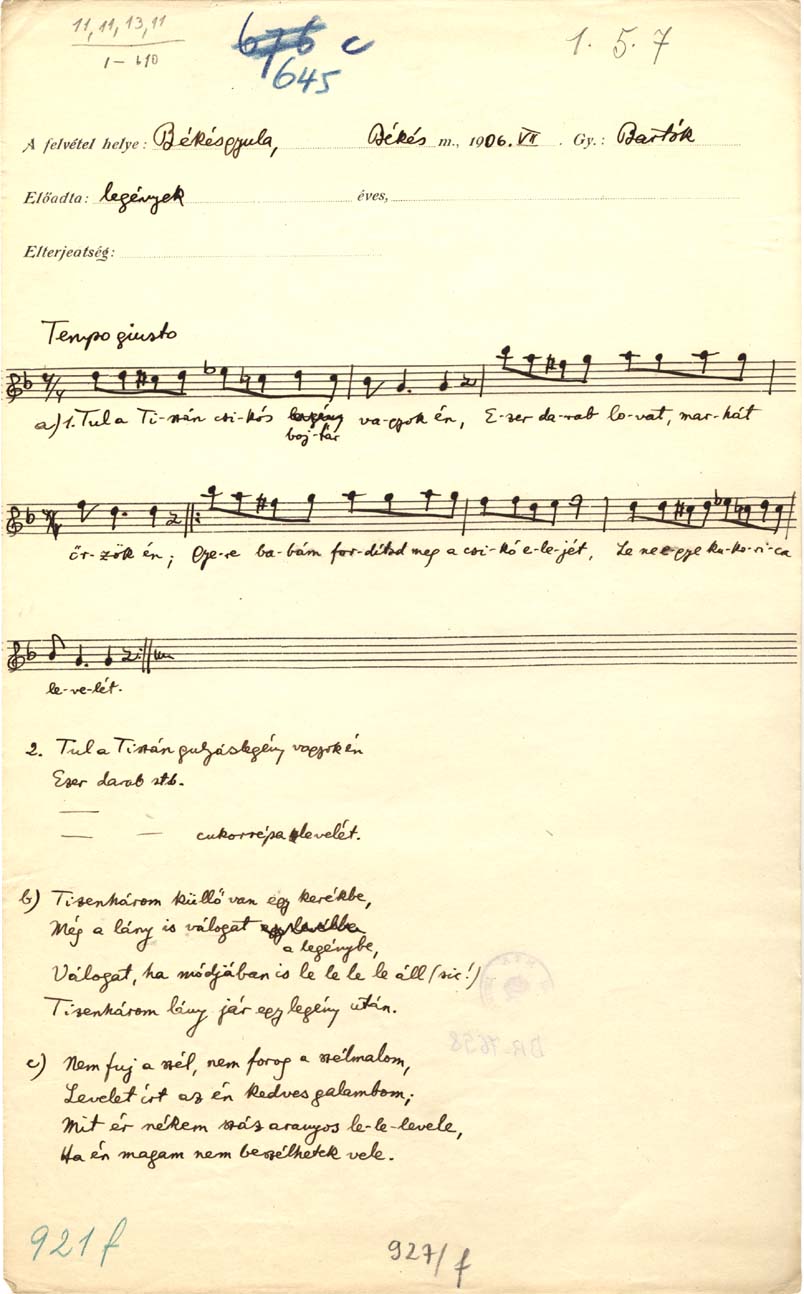 11, 11, 13, 11
1 – 610
676 c
645
1. 5. 7
A felvétel helye: Békésgyula, Békés m., 1906. VII. Gy.: Bartók
Előadta: legények éves,
Elterjeatség:
Tempo giusto
a) 1. Tul a Ti-szán csi-kós legény va-gyok én, E-zer da-rab lo-vat, mar-hát
boj-tár
őr-zök én; Gye-re ba-bám for-dítsd meg a csi-kó e-le-jét, Le ne egye ku-ko-ri-ca
le-ve-lét.
2. Tul a Tiszán gulyáslegény vagyok én
Ezer darab stb.
— — cukorrépa levelét.
b) Tizenhárom küllő van egy kerékbe,
Még a lány is válogat
a legénybe,
Válogat, ha módjában is le le le le áll (sic!)
Tizenhárom lány jár egy legény után.
c) Nem fuj a szél, nem forog a szélmalom,
Levelet írt az én kedves galambom;
Mit ér nékem száz aranyos le-le-levele,
Ha én magam nem beszélhetek vele.
BR_7658
921 f
927/f